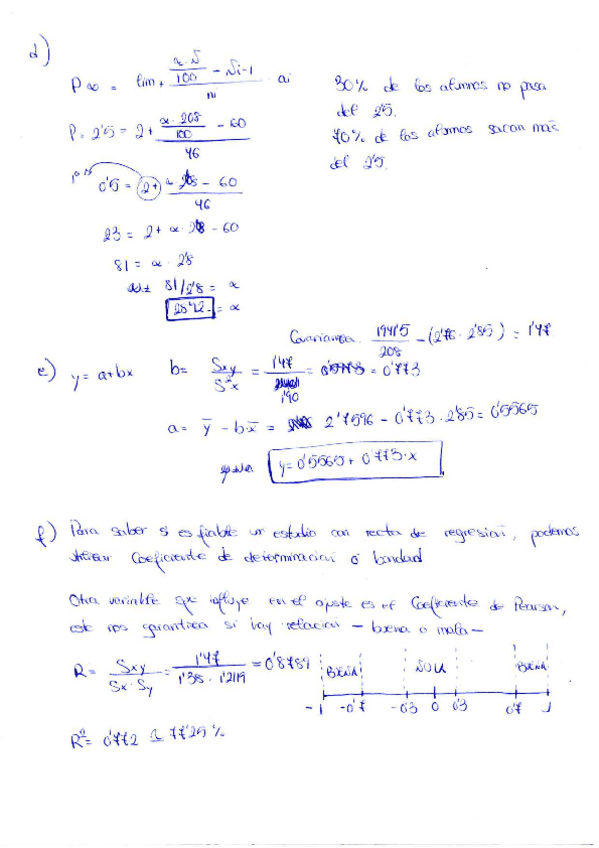 d)
P∞ = lim+ (x·N/100 - Ni-1)/ni · ai
30% de los alumnos no pasa
del 2'5.
P. 2'5 = 2 + (x·208/100 - 60)/46
70% de los alumnos sacan más
del 2'5.
0'5 = 2+ x·2'8 - 60 / 46
23 = 2 + x·2'8 - 60
81 = x · 2'8
81/2'8 = x
28'92 = x
Covarianza 1941'5/208 - (2'76 · 2'85) = 1'47
e) y = a+bx b = Sxy/S²x = 1'47/1'90 = 0'773
a = ȳ - bx̄ = 2'7596 - 0'773 · 2'85 = 0'5565
y = 0'5565 + 0'773·x
f) Para saber si es fiable un estudio con recta de regresión, podemos
utilizar Coeficiente de determinación ó bondad
Otra variable que influye en el ajuste es el Coeficiente de Pearson,
este nos garantiza si hay relación - buena o mala -
R = Sxy/Sx·Sy = 1'47/1'38 · 1'2119 = 0'8789
BUENA NULA BUENA
-1 -0'7 -0'3 0 0'3 0'7 1
R² = 0'772 ≈ 77'25 %